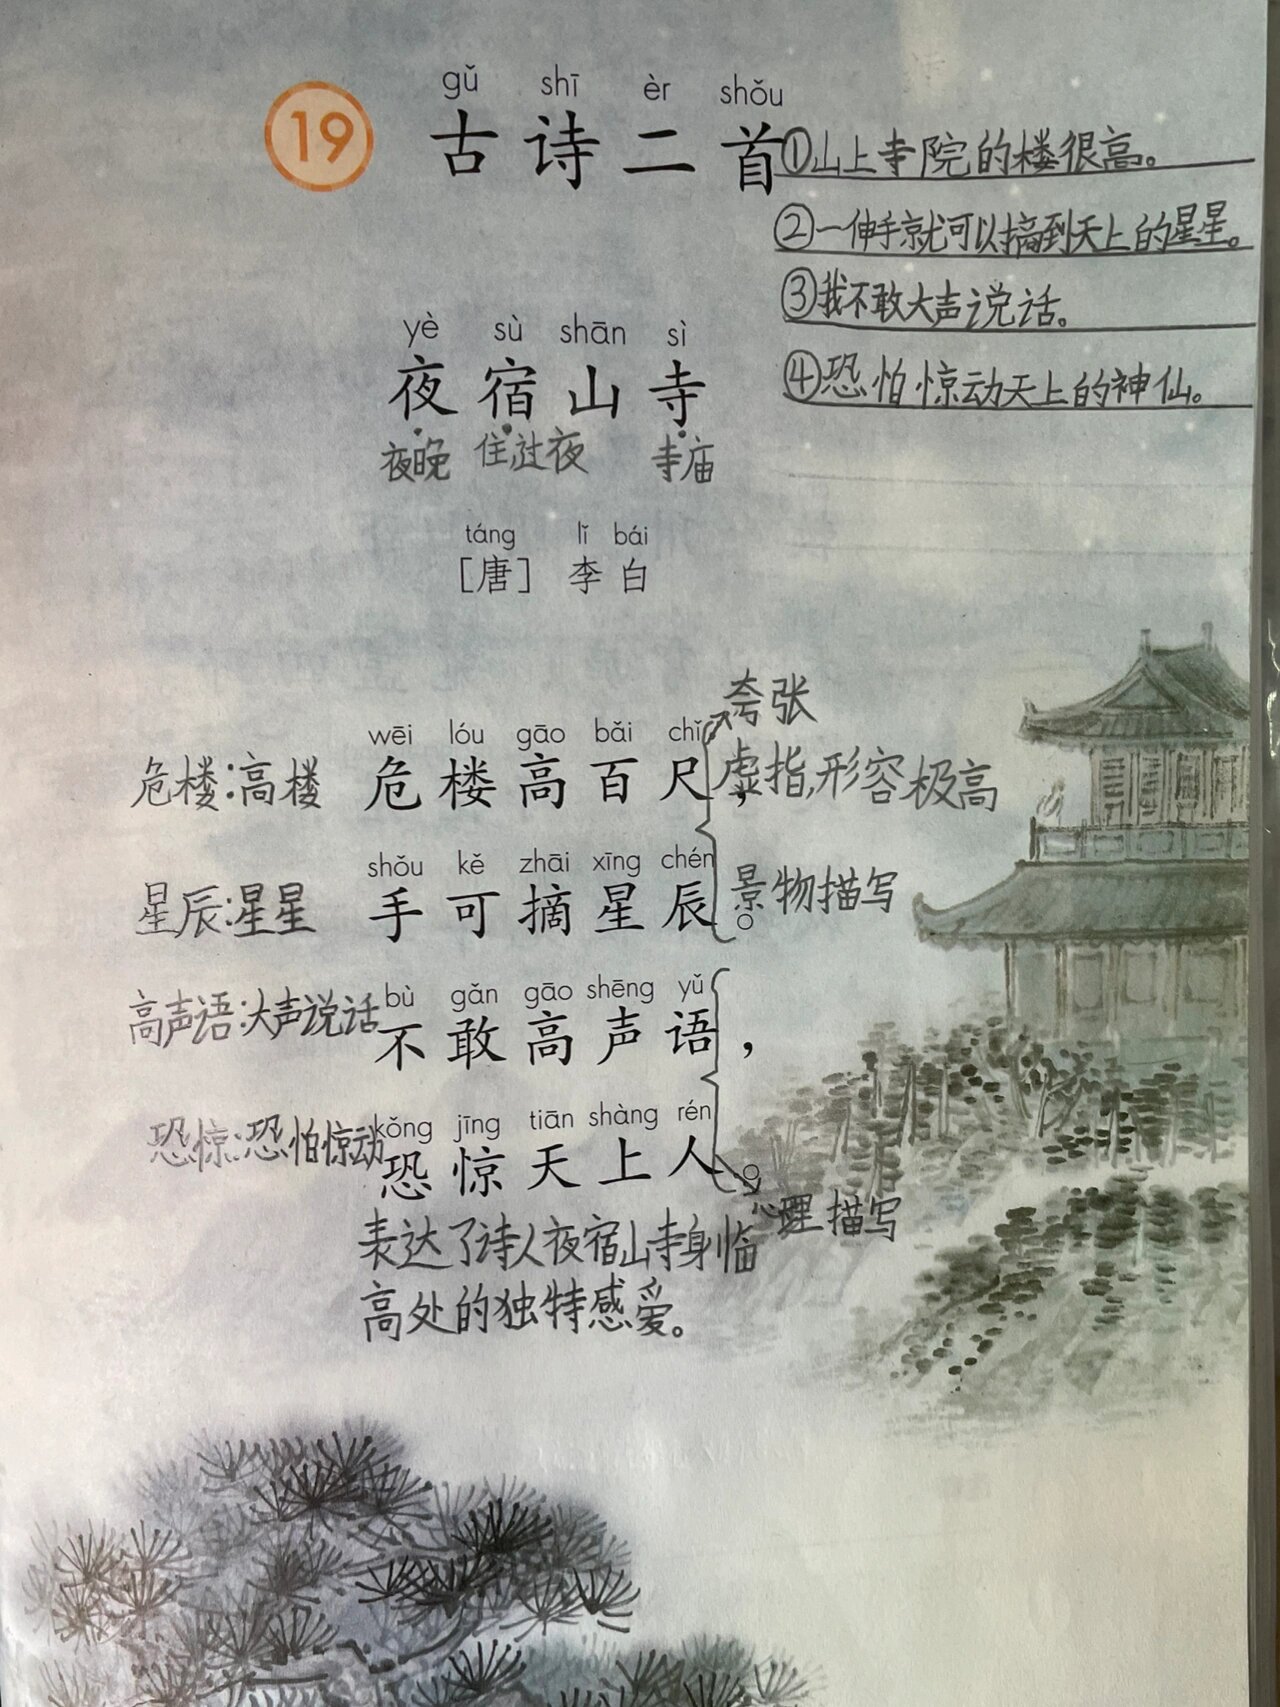 gǔ shī èr shǒu
19 古诗二首
①山上寺院的楼很高。
②一伸手就可以摘到天上的星星。
③我不敢大声说话。
④恐怕惊动天上的神仙。
yè sù shān sì
夜宿山寺
夜晚 住,过夜 寺庙
táng lǐ bái
[唐] 李白
夸张
wēi lóu gāo bǎi chǐ
危楼:高楼 危楼高百尺, 虚指,形容极高
shǒu kě zhāi xīng chén
星辰:星星 手可摘星辰。 景物描写
bù gǎn gāo shēng yǔ
高声语:大声说话 不敢高声语,
kǒng jīng tiān shàng rén
恐惊:恐怕惊动 恐惊天上人。
心理描写
表达了诗人夜宿山寺身临
高处的独特感爱。